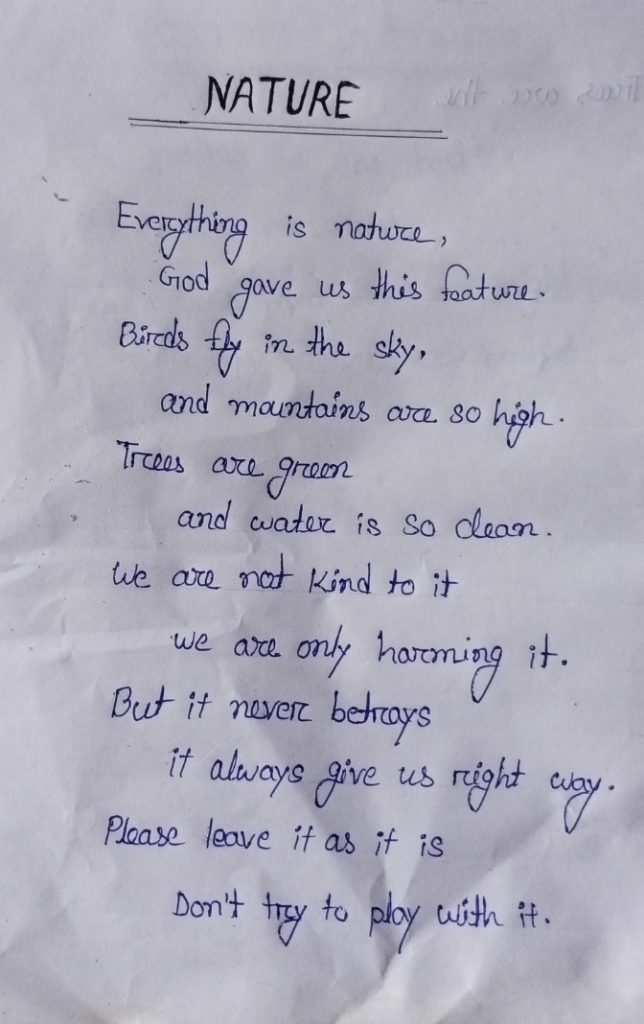 NATURE
Everything is nature,
God gave us this feature.
Birds fly in the sky,
and mountains are so high.
Trees are green
and water is so clean.
We are not kind to it
we are only harming it.
But it never betrays
it always give us right way.
Please leave it as it is
Don't try to play with it.